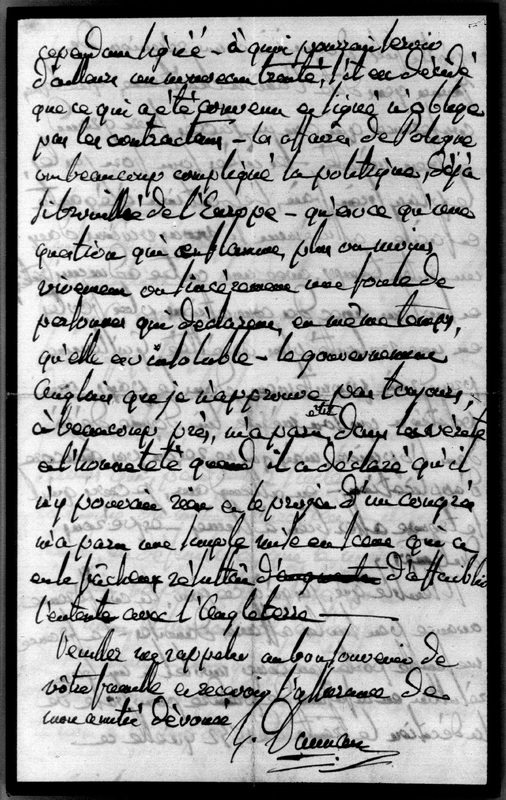 cependant signé — à quoi pourrait servir
d'ailleurs un nouveau traité, s'il est décidé
que ce qui a été convenu et signé n'oblige
pas les contractans — les affaires de Pologne
ont beaucoup compliqué la politique, déjà
si brouillée de l'Europe — qu'est ce qu'une
question qui enflamme, plus ou moins
vivement ou sincèrement une foule de
personnes qui déclarent, en même temps,
qu'elle est insoluble — le gouvernement
anglais que je n'approuve pas toujours,
à beaucoup près, m'a paru être dans la vérité
et l'honnêteté quand il a déclaré qu'il
n'y pouvait rien et le projet d'un congrès
m'a paru une simple mise en scène qui a
eu le fâcheux résultat d'affaiblir
l'entente avec l'Angleterre —
Veuillez me rappeler au bon souvenir de
votre famille et recevoir l'assurance de
mon amitié dévouée